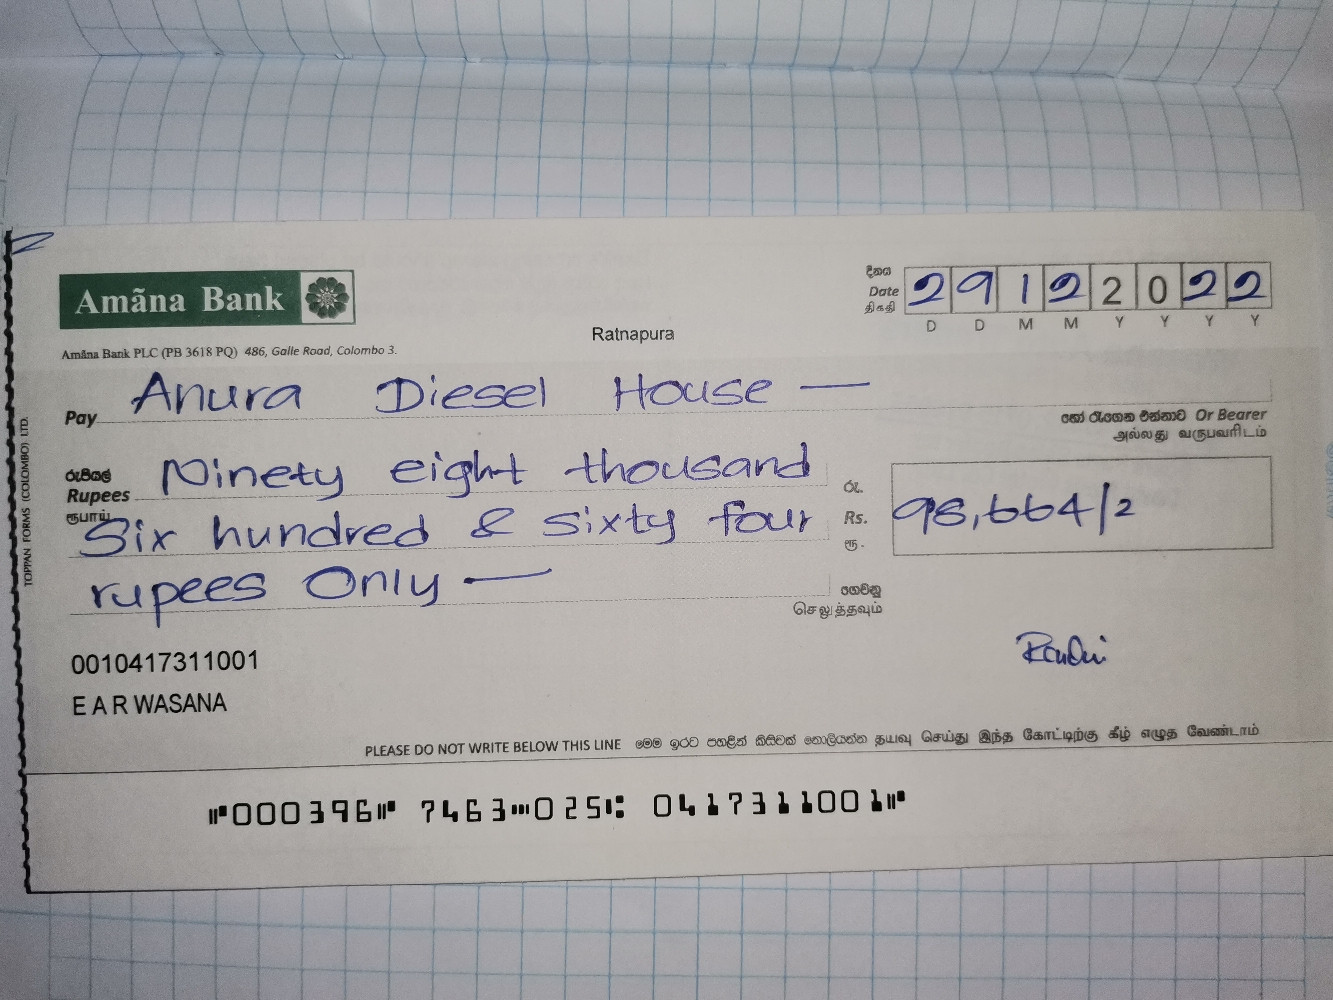 Amãna Bank
දිනය
Date
திகதி
29122022
D D M M Y Y Y Y
Ratnapura
Amãna Bank PLC (PB 3618 PQ) 486, Galle Road, Colombo 3.
Pay Anura Diesel House —
හෝ රැගෙන එන්නාට Or Bearer
அல்லது வருபவரிடம்
රුපියල්
Rupees
ரூபாய்
Ninety eight thousand
Six hundred & sixty four
rupees Only —
රු.
Rs.
ரூ.
98,664/2
ගෙවනු
செலுத்தவும்
0010417311001
E A R WASANA
PLEASE DO NOT WRITE BELOW THIS LINE මෙම ඉරට පහළින් කිසිවක් නොලියන්න தயவு செய்து இந்த கோட்டிற்கு கீழ் எழுத வேண்டாம்
⑈000396⑈ 7463⑉025⑆ 0417311001⑈
TOPPAN FORMS (COLOMBO) LTD.